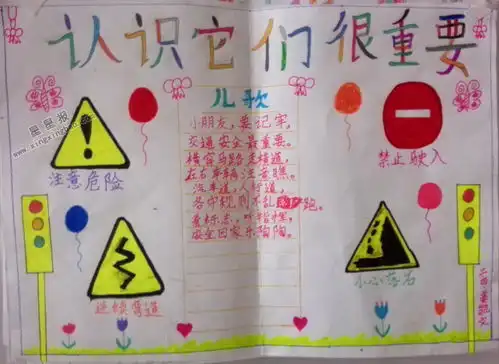 认识它们很重要
星星报
www.xingxingbao.c
儿歌
小朋友，要记牢，
交通安全最重要。
横穿马路走横道，
左右车辆注意瞧。
汽车道，人行道，
各守规则不乱跑。
看标志，听指挥，
安全回家乐陶陶。
注意危险
连续弯道
禁止驶入
小心落石
二四